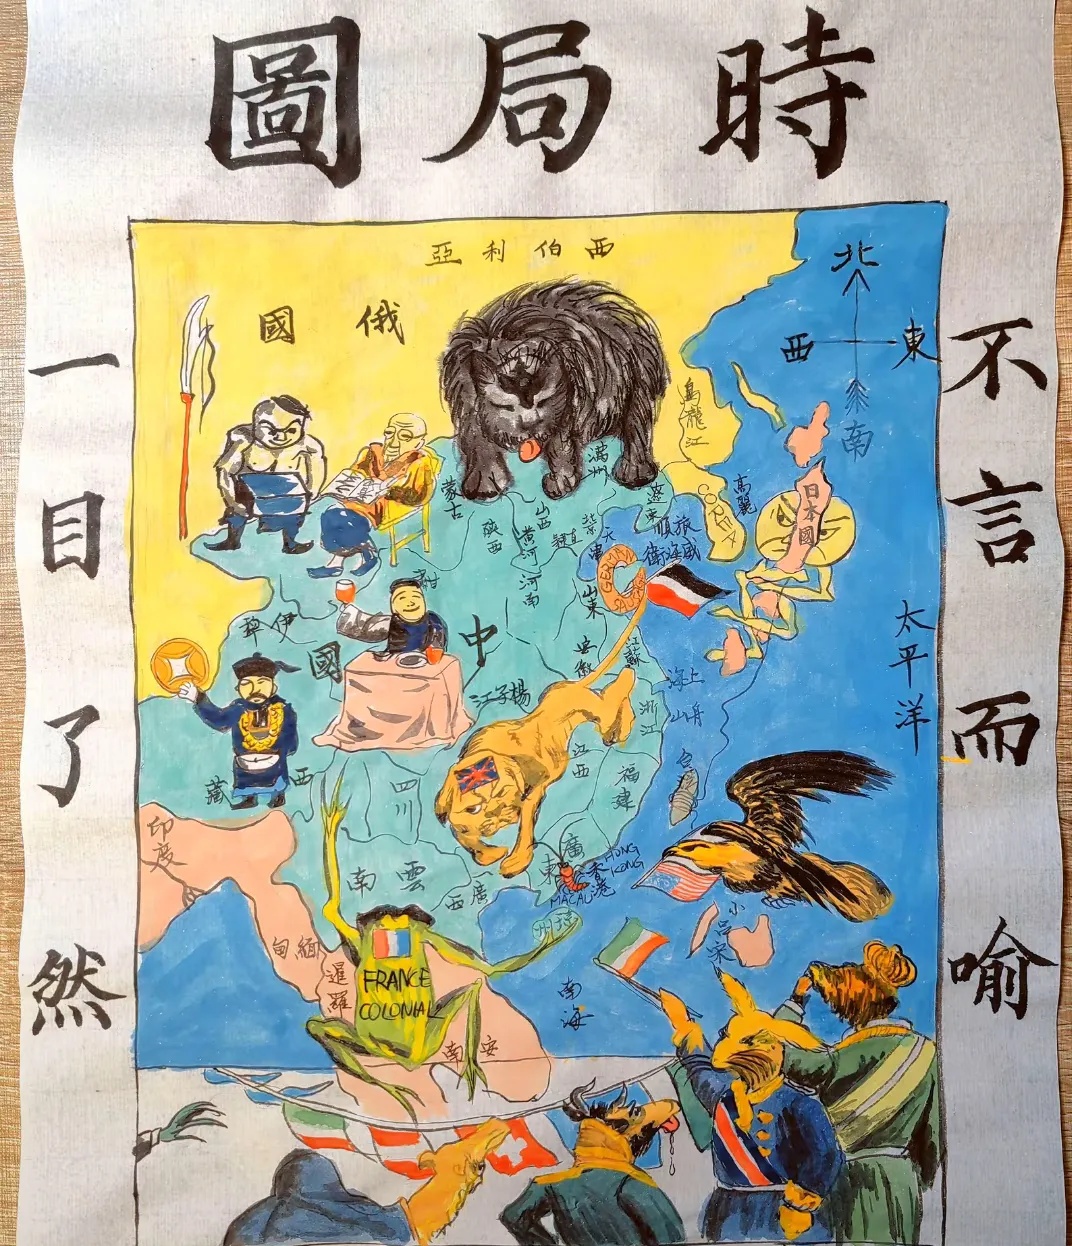 時局圖
不言而喻
一目了然
西伯利亞
俄國
北
東
西
南
烏龍江
滿洲
蒙古
高麗
COREA
日本國
陝西
山西
黃河
河南
山東
旅順
威海衛
GERMANY
太平洋
伊犁
中國
楊子江
安徽
江蘇
上海
舟山
浙江
江西
福建
西藏
四川
印度
雲南
廣西
廣東
香港
HONG KONG
MACAU
小呂宋
緬甸
暹羅
FRANCE
COLONIAL
安南
南海